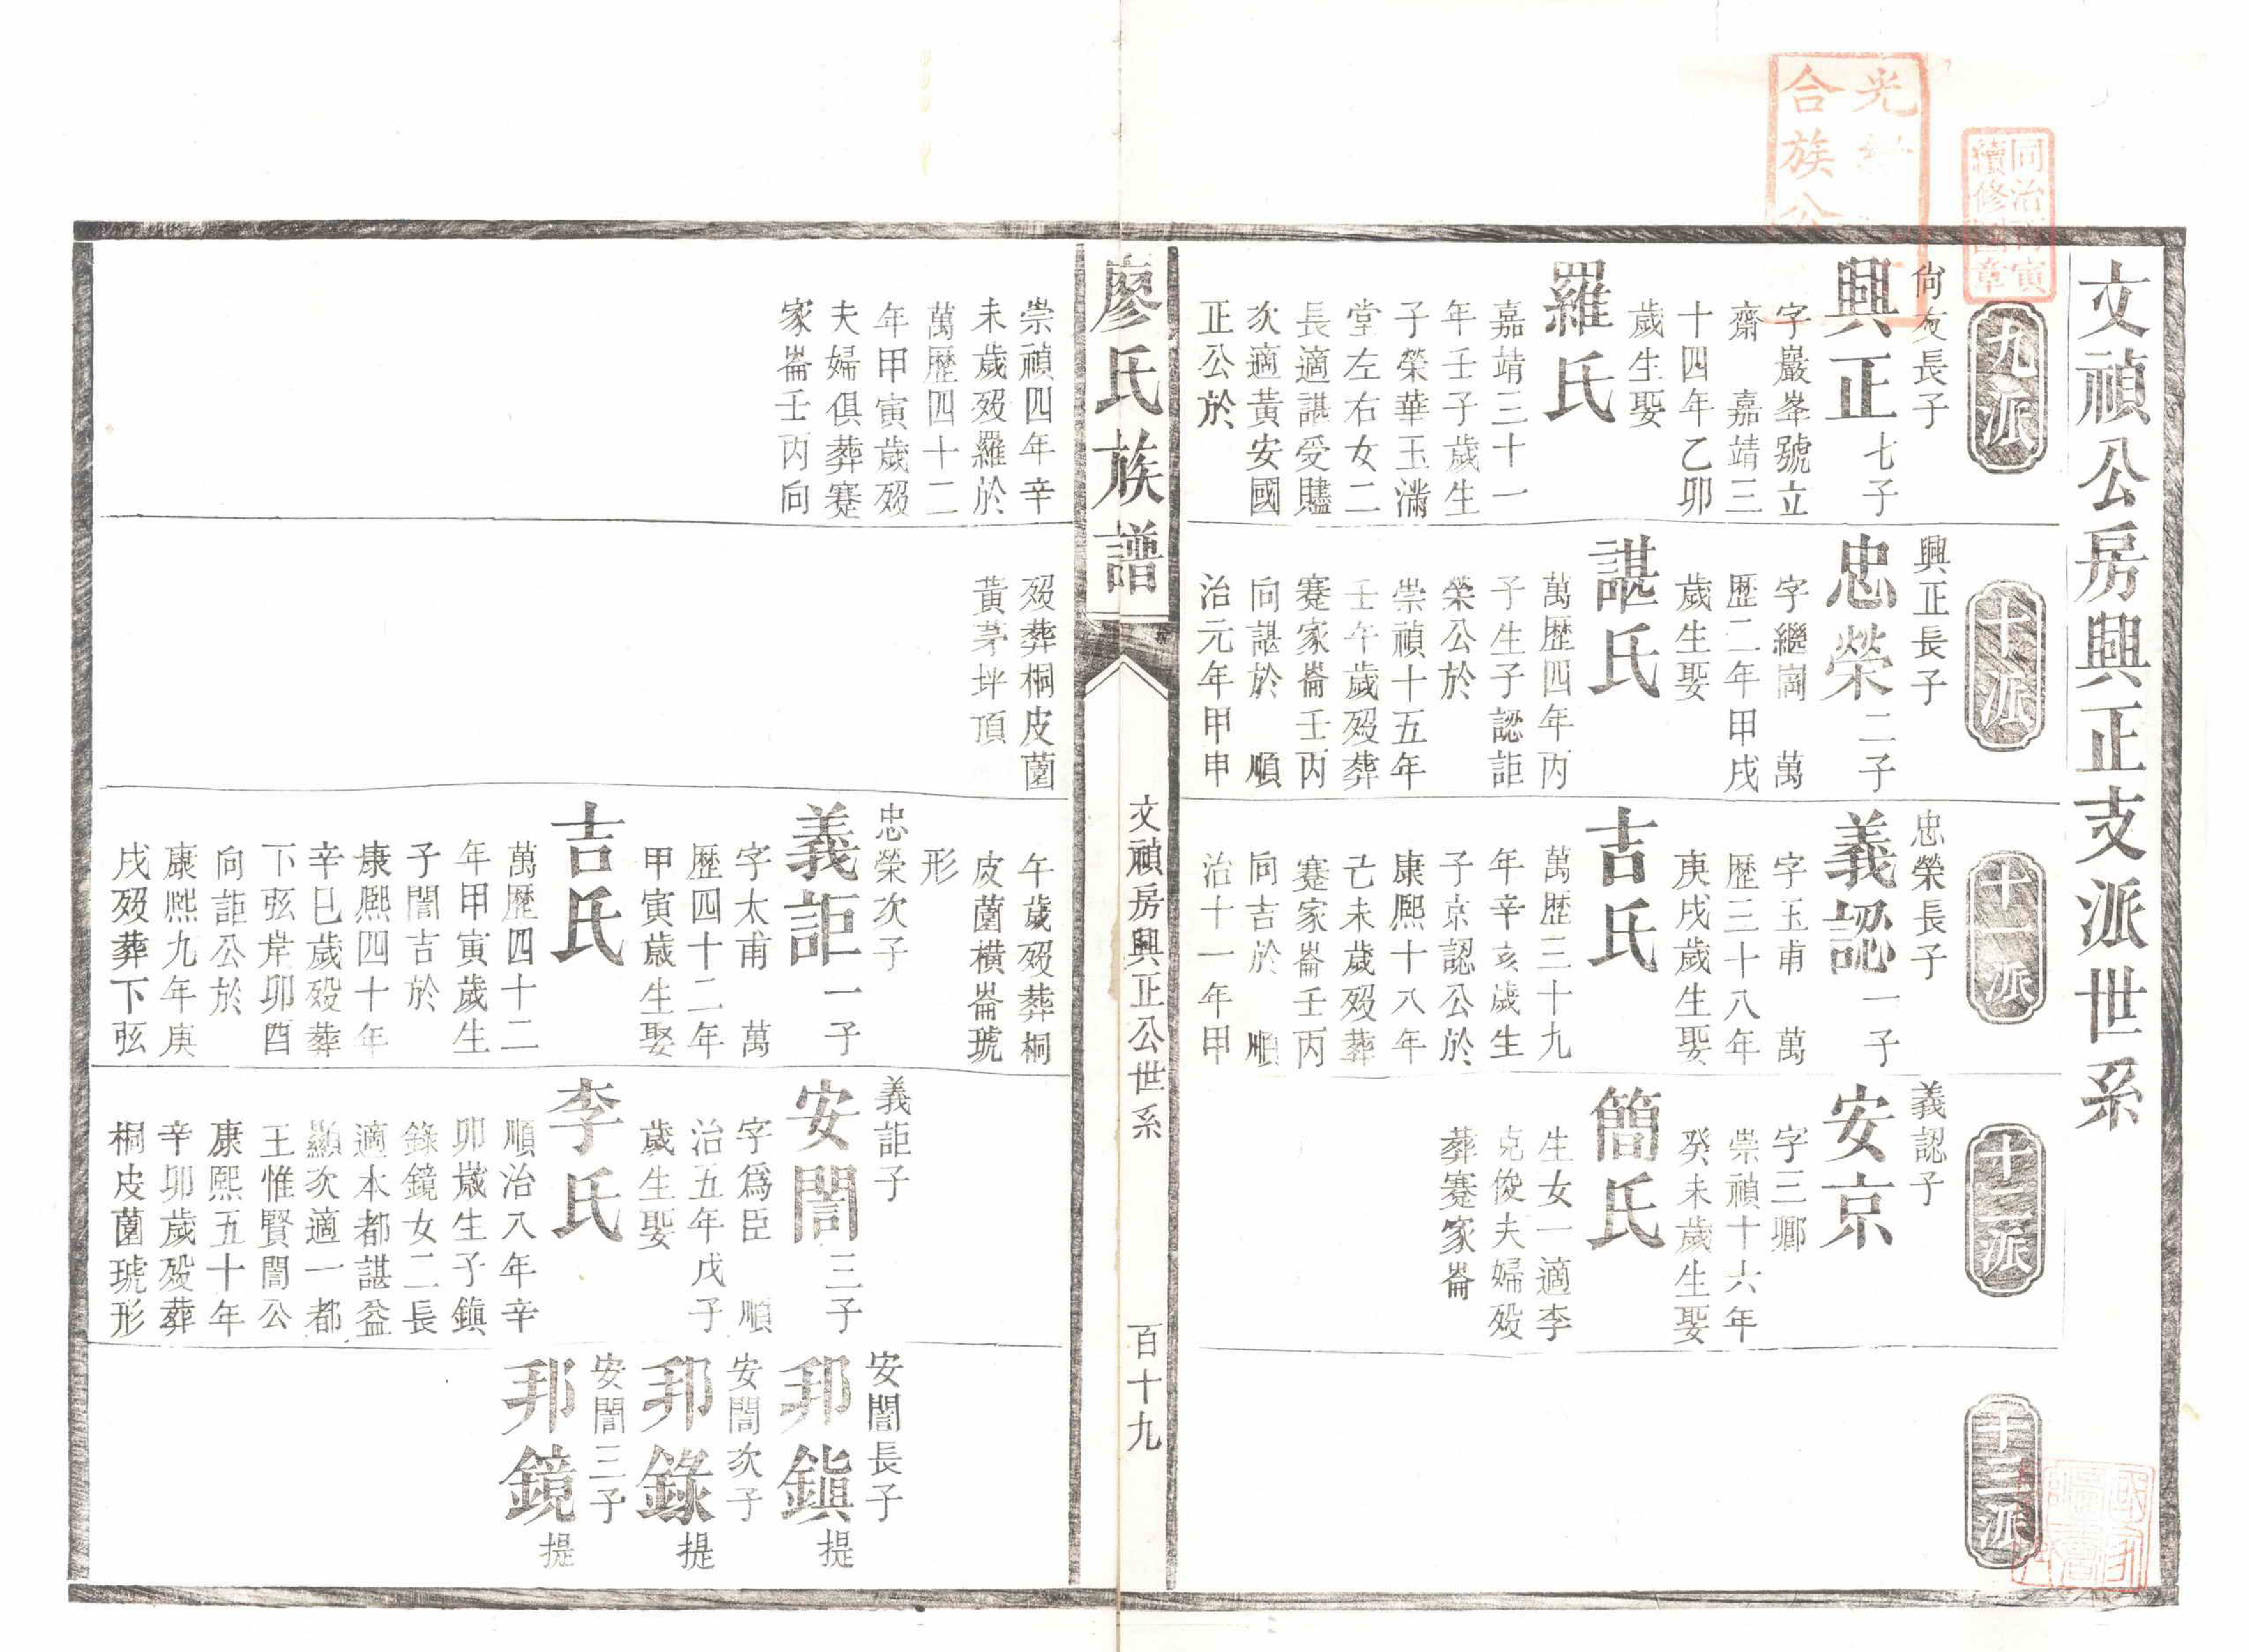 文禎公房興正支派世系
九派
尙友長子
興正
七子
字嚴峯號立
齋 嘉靖三
十四年乙卯
歲生娶
羅氏
嘉靖三十一
年壬子歲生
子榮華玉滿
堂左右女二
長適諶受贐
次適黃安國
正公於
十派
興正長子
忠榮
二子
字繼崗 萬
歷二年甲戌
歲生娶
諶氏
萬歷四年丙
子生子認詎
榮公於
崇禎十五年
壬午歲歿葬
蹇家崙壬丙
向諶於 順
治元年甲申
十一派
忠榮長子
義認
一子
字玉甫 萬
歷三十八年
庚戌歲生娶
吉氏
萬歷三十九
年辛亥歲生
子京認公於
康熙十八年
己未歲歿葬
蹇家崙壬丙
向吉於 順
治十一年甲
十二派
義認子
安京
字三鄉
崇禎十六年
癸未歲生娶
簡氏
生女一適李
克俊夫婦歿
葬蹇家崙
十三派
廖氏族譜
文禎房興正公世系
百十九
崇禎四年辛
未歲歿羅於
萬歷四十二
年甲寅歲歿
夫婦俱葬蹇
家崙壬丙向
歿葬桐皮薗
黃茅坪頂
午歲歿葬桐
皮薗橫崙琥
形
忠榮次子
義詎
一子
字太甫 萬
歷四十二年
甲寅歲生娶
吉氏
萬歷四十二
年甲寅歲生
子誾吉於
康熙四十年
辛巳歲歿葬
下弦岸卯酉
向詎公於
康熙九年庚
戌歿葬下弦
義詎子
安誾
三子
字爲臣 順
治五年戊子
歲生娶
李氏
順治八年辛
卯歲生子鎭
錄鏡女二長
適本都諶益
顯次適一都
王惟賢誾公
康熙五十年
辛卯歲歿葬
桐皮薗琥形
安誾長子
邦鎭
提
安誾次子
邦錄
提
安誾三子
邦鏡
提
合族公
同治丙寅
續修圖章